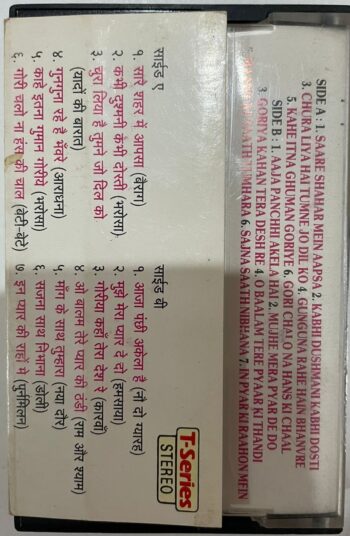 SIDE A : 1. SAARE SHAHAR MEIN AAPSA 2. KABHI DUSHMANI KABHI DOSTI
3. CHURA LIYA HAI TUMNE JO DIL KO 4. GUNGUNA RAHE HAIN BHANVRE
5. KAHE ITNA GHUMAN GORIYE 6. GORI CHALO NA HANS KI CHAAL
SIDE B : 1. AAJA PANCHHI AKELA HAI 2. MUJHE MERA PYAR DE DO
3. GORIYA KAHAN TERA DESH RE 4. O BAALAM TERE PYAR KI THANDI
SAATH TUMHARA 6. SAJNA SAATH NIBHANA 7. IN PYAR KI RAAHON MEIN
साईड ए
१. सारे शहर में आपसा (बैराग)
२. कभी दुश्मनी कभी दोस्ती (भरोसा)
३. चुरा लिया है तुमने जो दिल को
(यादों की बारात)
४. गुनगुना रहे हैं भँवरे (आराधना)
५. काहे इतना गुमान गोरीये (भरोसा)
६. गोरी चलो ना हंस की चाल (बेटी-बेटे)
साईड बी
१. आजा पंछी अकेला है (नौ दो ग्यारह)
२. मुझे मेरा प्यार दे दो (हमसाया)
३. गोरीया कहाँ तेरा देश रे (कारवाँ)
४. ओ बालम तेरे प्यार की ठंडी (राम और श्याम)
५. माँग के साथ तुम्हारा (नया दौर)
६. सजना साथ निभाना (डोली)
७. इन प्यार की राहों में (पुनर्मिलन)
T-Series
STEREO